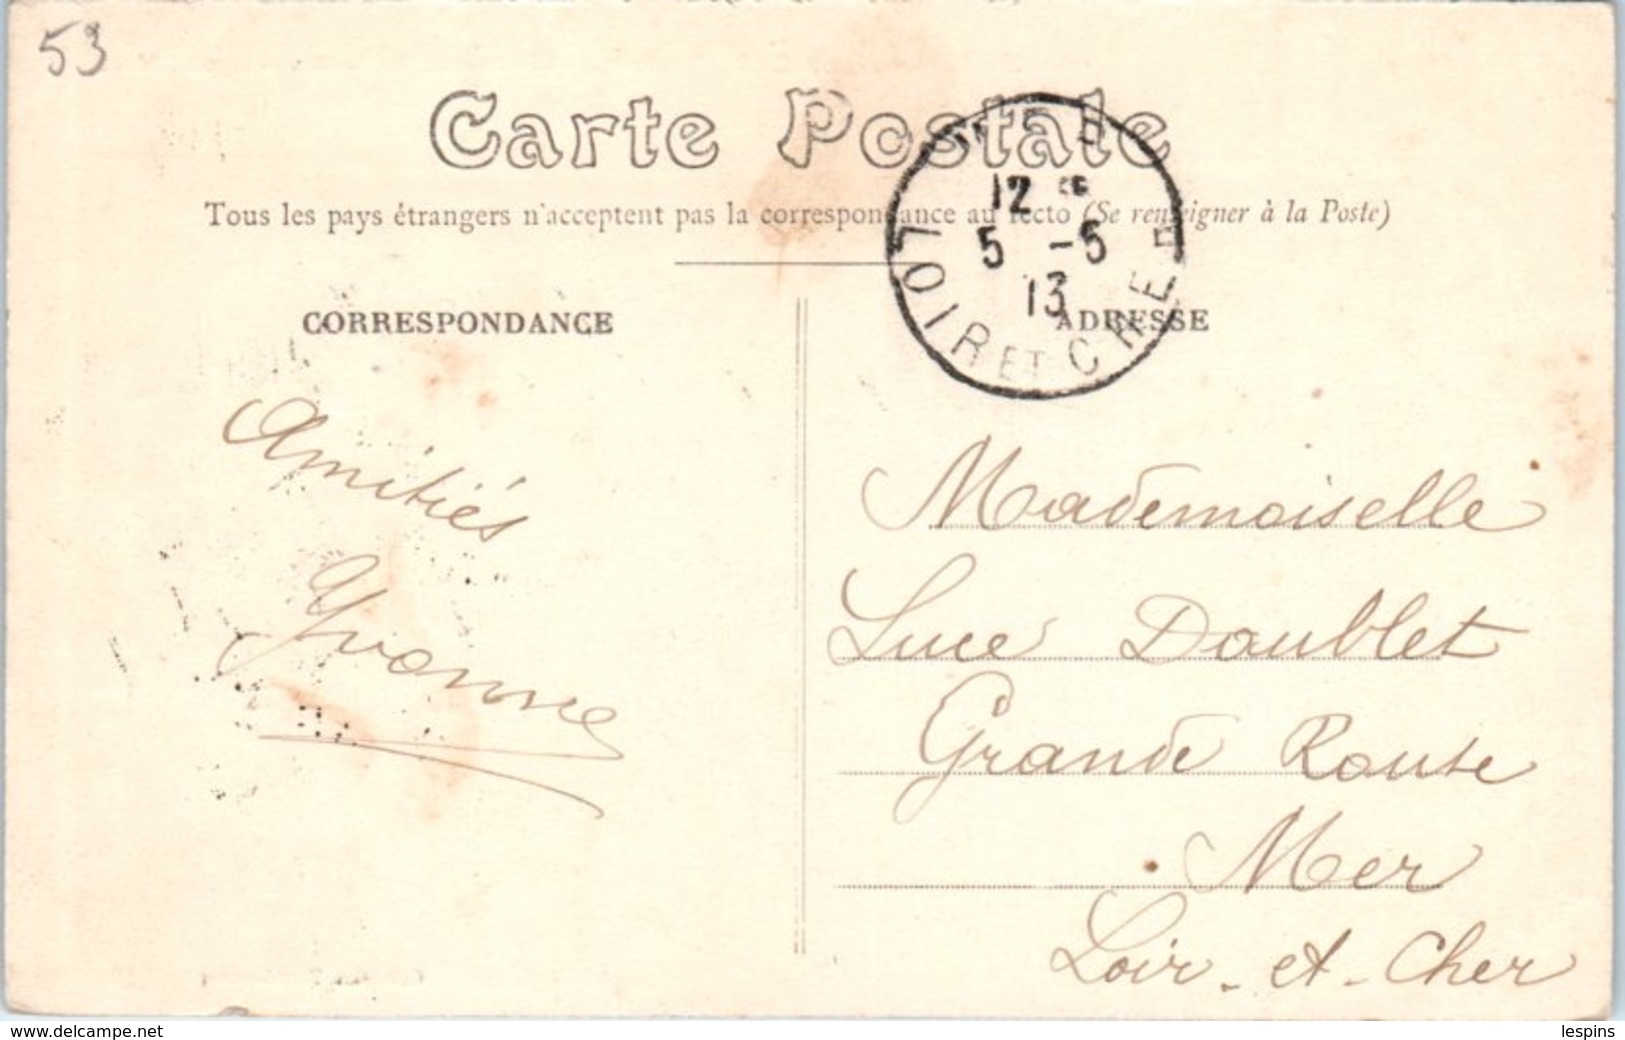 53
Carte Postale
Tous les pays étrangers n'acceptent pas la correspondance au recto (Se renseigner à la Poste)
MER
12
5 -5
13
LOIR ET CHER
CORRESPONDANCE
ADRESSE
Amitiés
Yvonne
Mademoiselle
Luce Doublet
Grande Route
Mer
Loir-et-Cher
www.delcampe.net
lespins